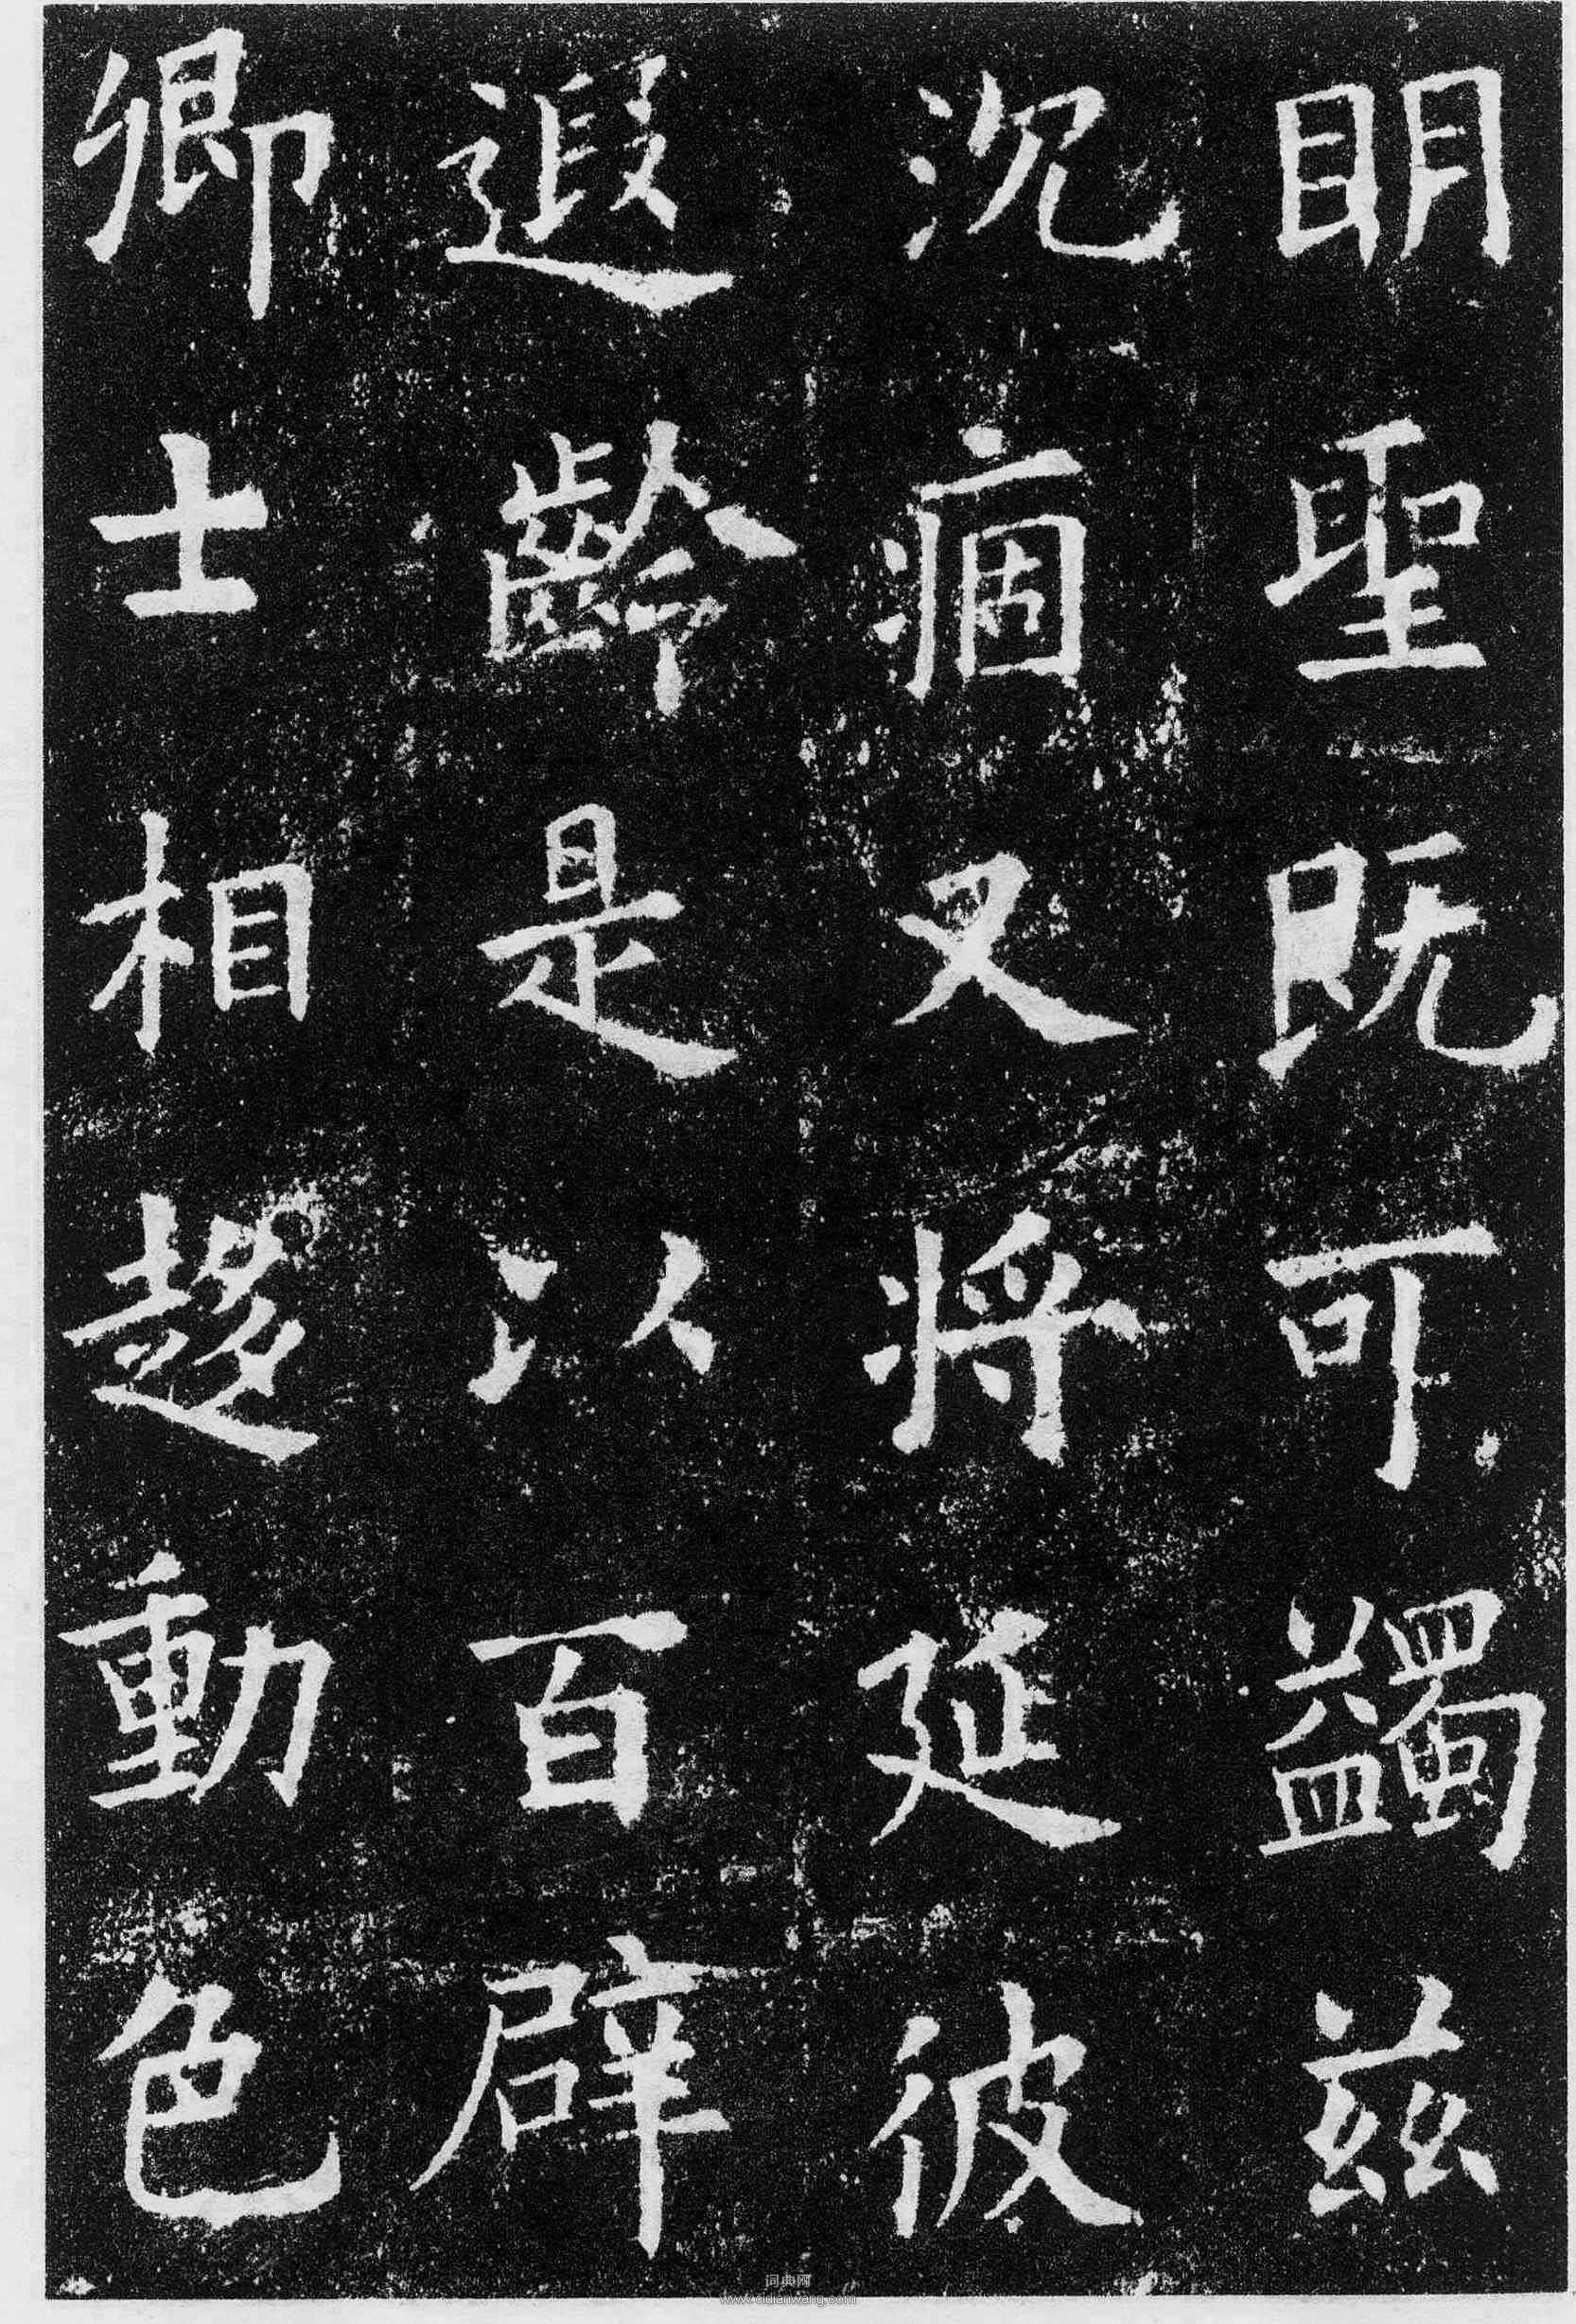 眀聖既可蠲兹
沉痼又将延彼
遐齡是以百辟
卿士相趍動色
词典网
www.cidianwang.com